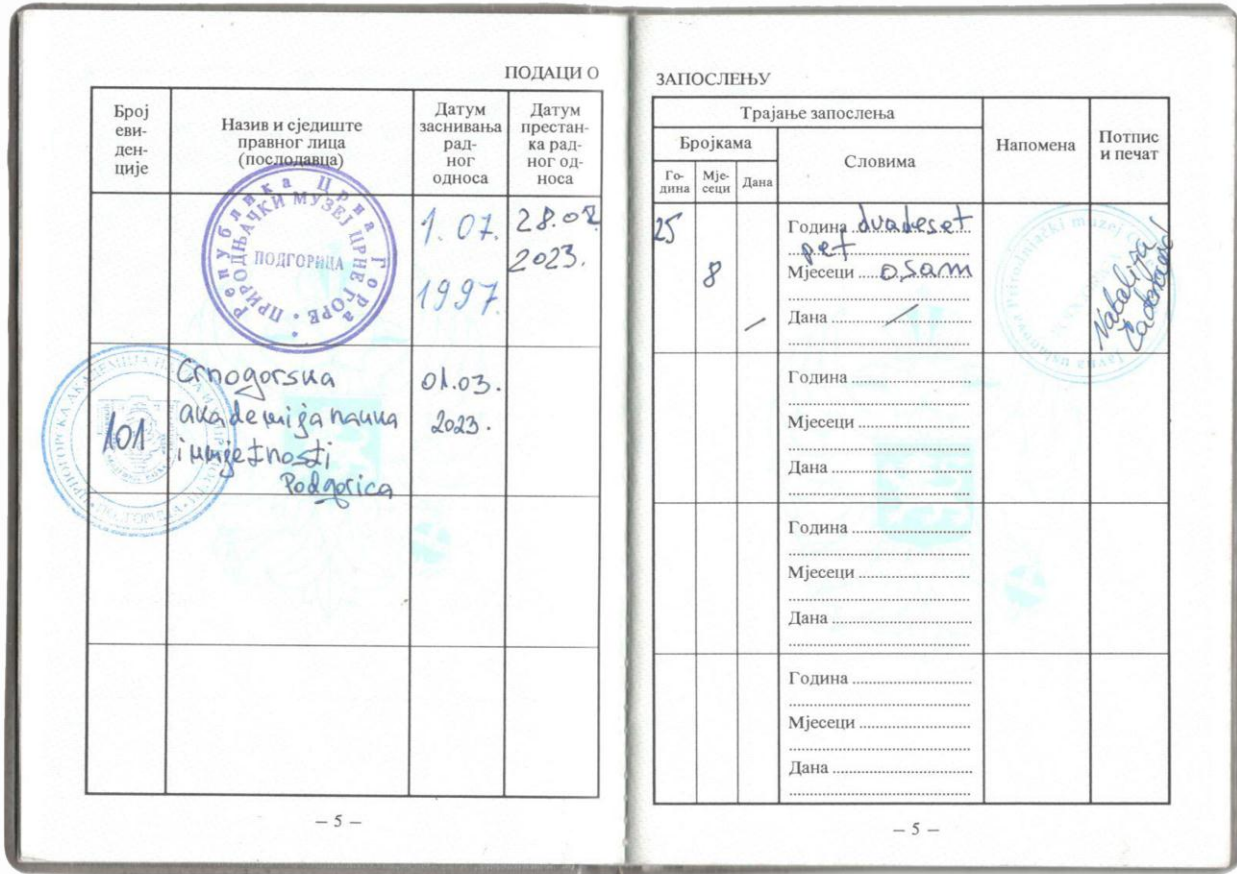 ПОДАЦИ О
Број
еви-
ден-
ције
Назив и сједиште
правног лица
(послодавца)
Датум
заснивања
рад-
ног
односа
Датум
престан-
ка рад-
ног од-
носа
Република Црна Гора
ПРИРОДЊАЧКИ МУЗЕЈ ЦРНЕ ГОРЕ
ПОДГОРИЦА
1.07.
1997.
28.02
2023.
101
Crnogorska
akademija nauka
i umjetnosti
Podgorica
01.03.
2023.
– 5 –
ЗАПОСЛЕЊУ
Трајање запослења
Напомена
Потпис
и печат
Бројкама
Словима
Го-
дина
Мје-
сеци
Дана
25
8
/
Година dvadeset
pet
Мјесеци osam
Дана /
Natalija
Година
Мјесеци
Дана
Година
Мјесеци
Дана
Година
Мјесеци
Дана
– 5 –